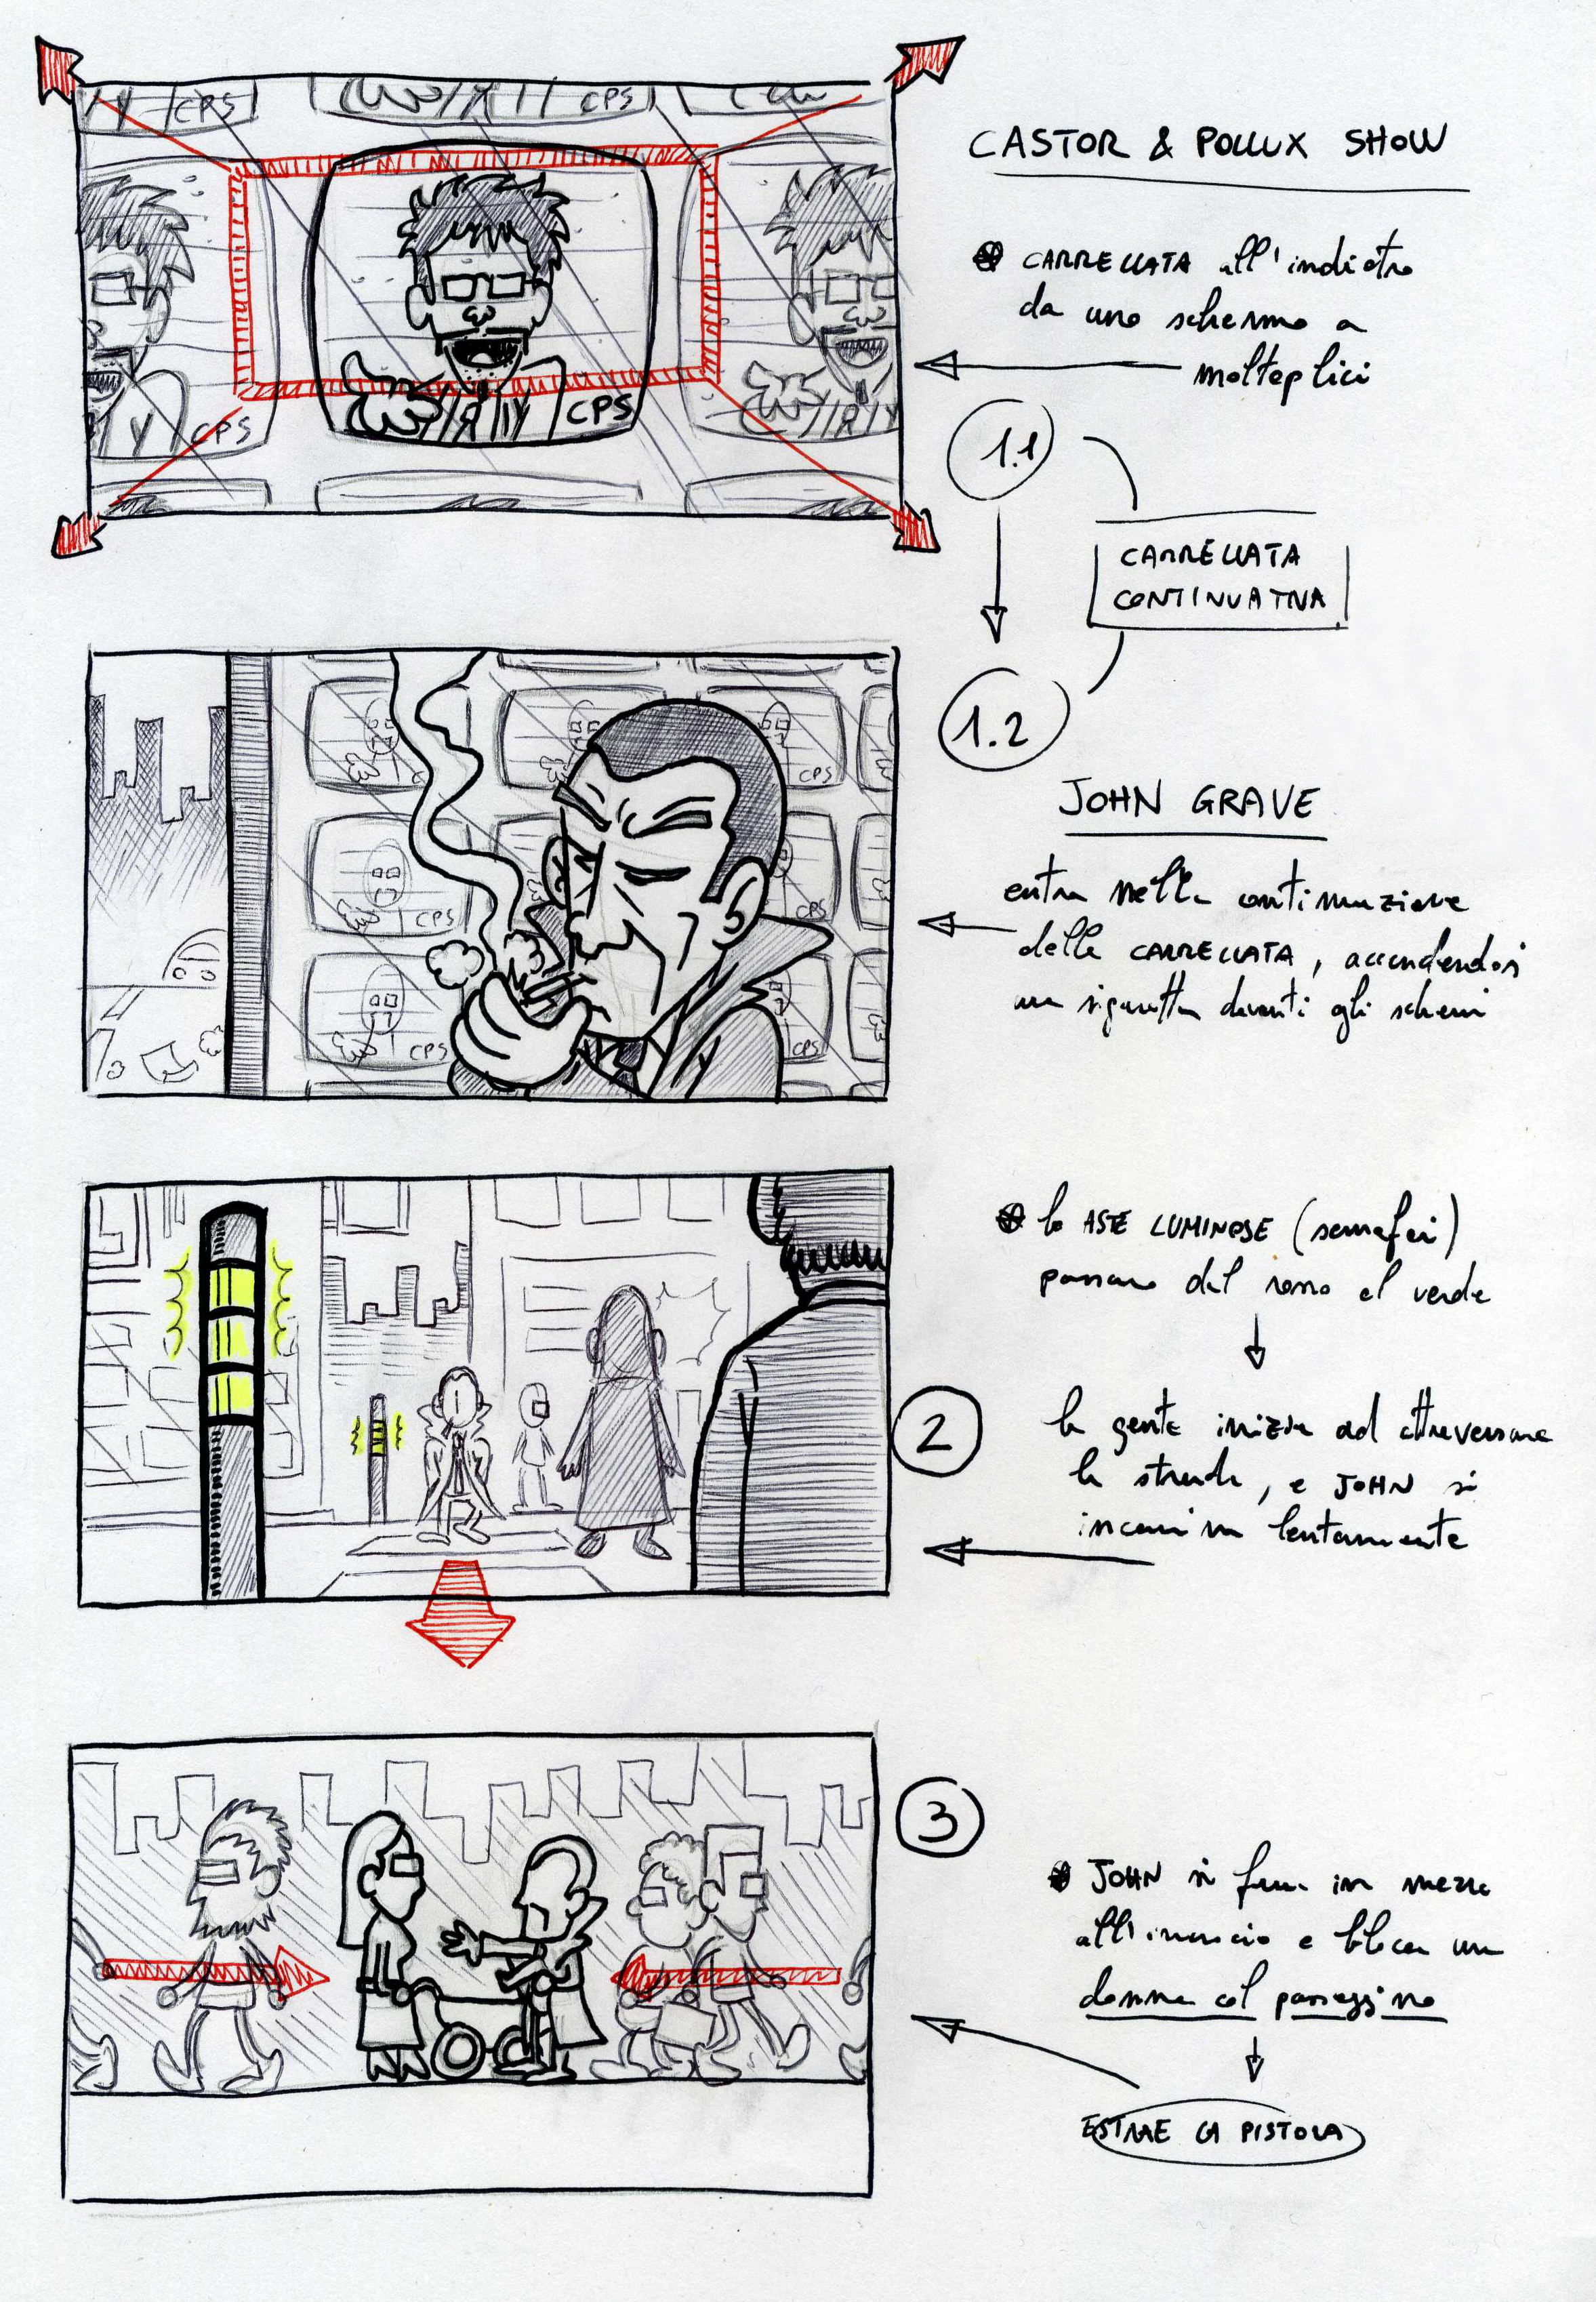 CPS
CPS
CASTOR & POLLUX SHOW
CARRELLATA all'indietro
da uno schermo a
molteplici
CPS
CPS
1.1
CARRELLATA
CONTINUATIVA
1.2
CPS
JOHN GRAVE
entra nella continuazione
CPS
CPS
della CARRELLATA, accendendosi
una sigaretta davanti gli schermi
CPS
CPS
le ASTE LUMINOSE (semafori)
passano dal rosso al verde
2
la gente inizia ad attraversare
la strada, e JOHN si
incammina lentamente
3
JOHN si ferma in mezzo
all'incrocio e blocca una
donna col passeggino
ESTRAE LA PISTOLA